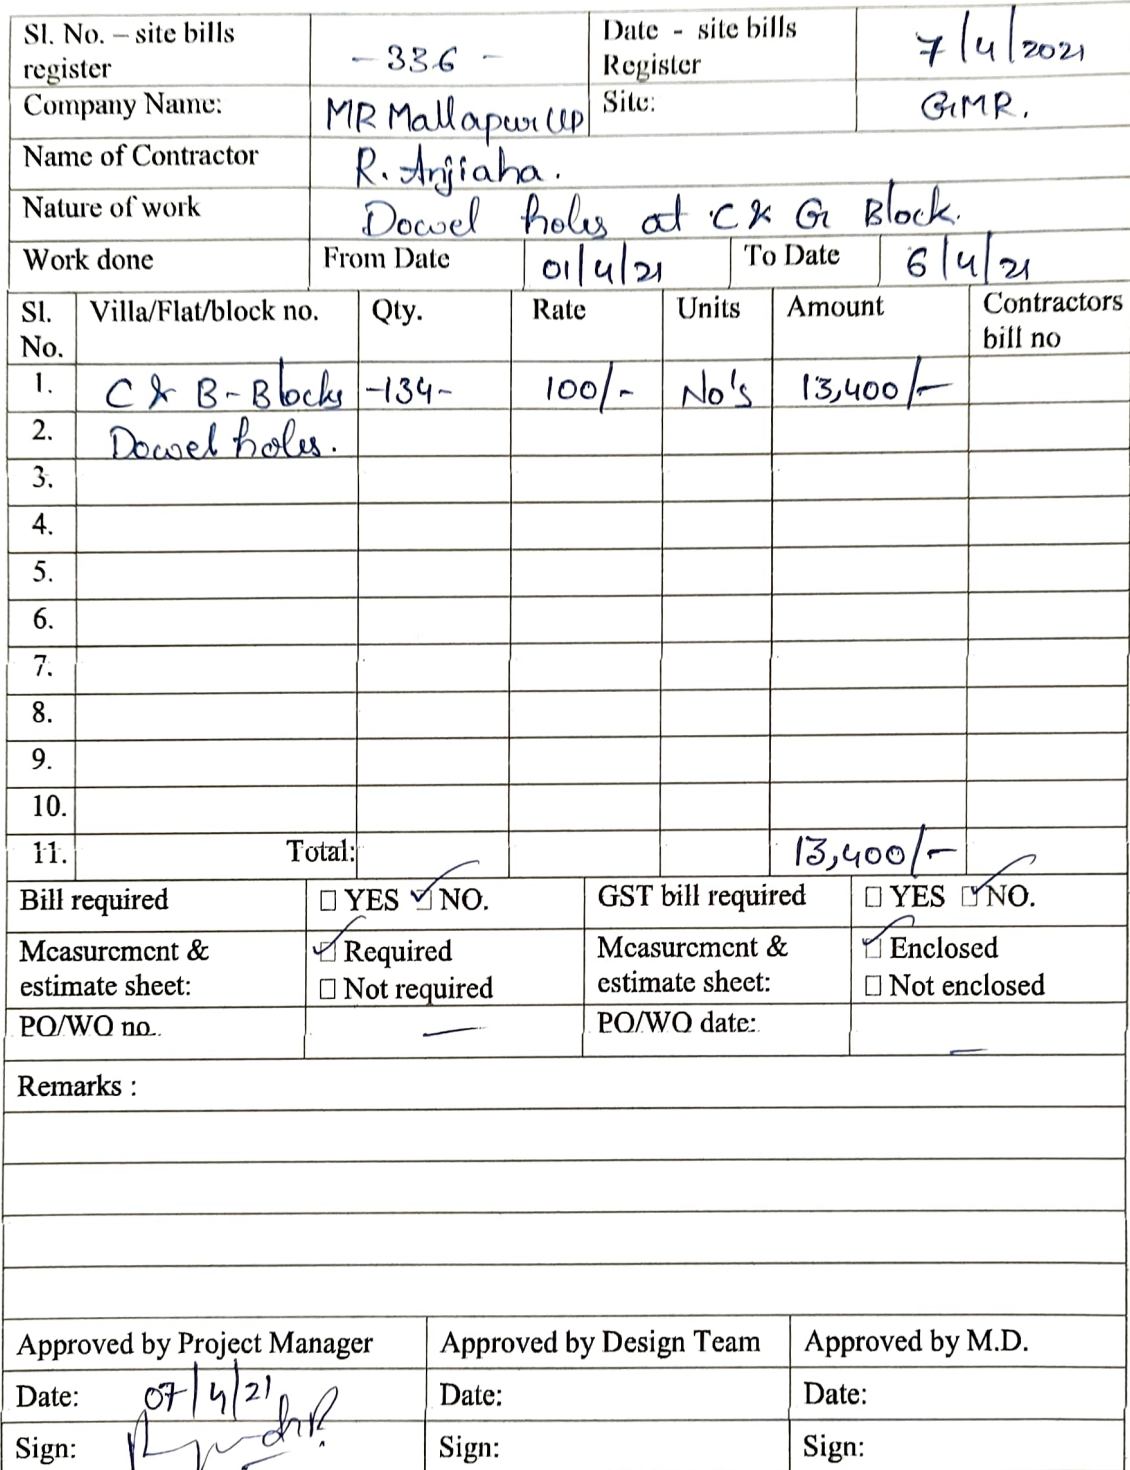 Sl. No. – site bills register -336- Date - site bills Register 7/4/2021
Company Name: MR Mallapur LLP Site: GMR.
Name of Contractor R. Anjiaha.
Nature of work Dowel holes at C & G Block.
Work done From Date 01/4/21 To Date 6/4/21
Sl. No. Villa/Flat/block no. Qty. Rate Units Amount Contractors bill no
1. C & B-Blocks -134- 100/- No's 13,400/-
2. Dowel holes.
3.
4.
5.
6.
7.
8.
9.
10.
11. Total: 13,400/-
Bill required ☐ YES ☑ NO. GST bill required ☐ YES ☑ NO.
Measurement & estimate sheet: ☑ Required ☐ Not required Measurement & estimate sheet: ☑ Enclosed ☐ Not enclosed
PO/WO no. — PO/WO date: —
Remarks :
Approved by Project Manager Approved by Design Team Approved by M.D.
Date: 07/4/21 Date: Date:
Sign: Sign: Sign: